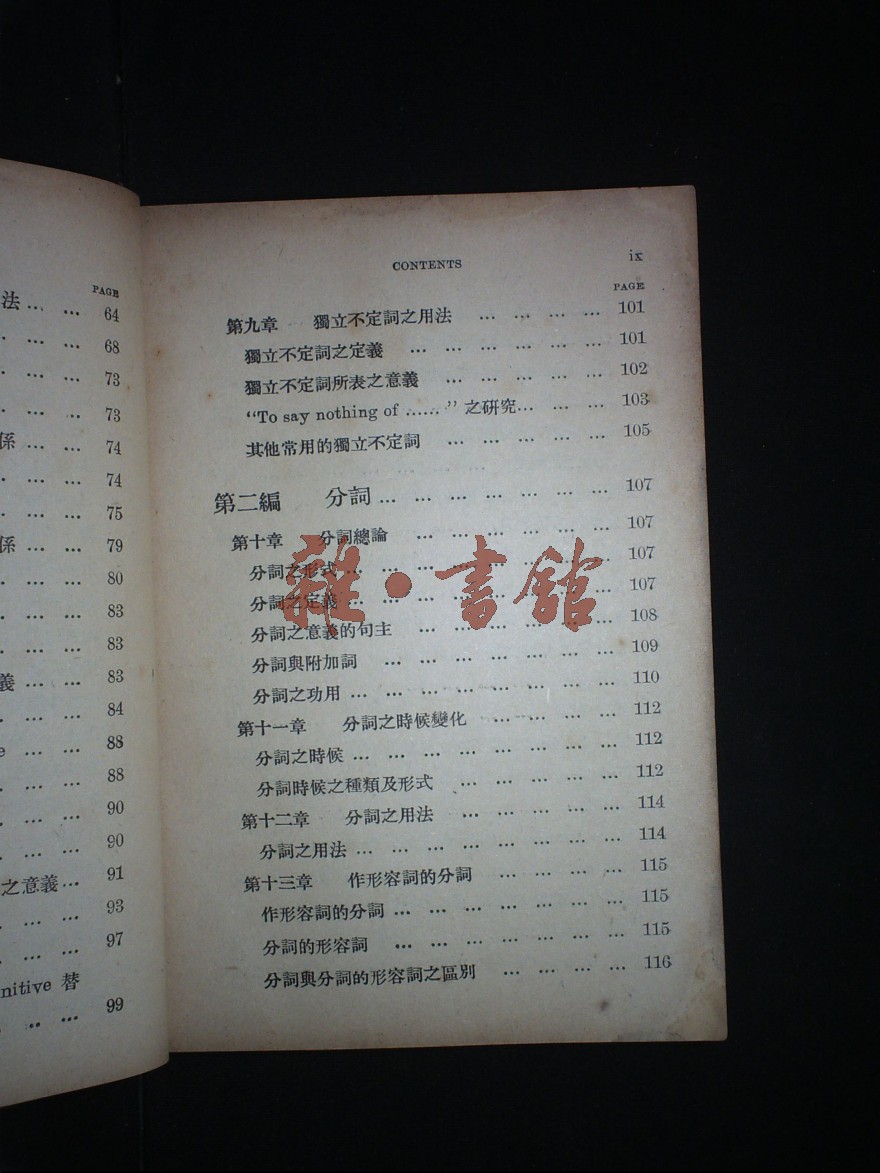 PAGE
法 … … 64
… … 68
… … 73
… … 73
係 … … 74
… … 74
… … 75
係 … … 79
… … 80
… … 83
… … 83
義 … … 83
… … 84
e … … 88
… … 88
… … 90
… … 90
… … 91
之意義… 93
… … 97
nitive 替
… … 99
CONTENTS ix
PAGE
第九章 獨立不定詞之用法 … … … … 101
獨立不定詞之定義 … … … … … … 101
獨立不定詞所表之意義 … … … … … 102
“To say nothing of ……” 之研究… … … 103
其他常用的獨立不定詞 … … … … … 105
第二編 分詞 … … … … … … … 107
第十章 分詞總論 … … … … … … 107
分詞之形式 … … … … … … … … 107
分詞之定義 … … … … … … … … 107
分詞之意義的句主 … … … … … … 108
分詞與附加詞 … … … … … … … 109
分詞之功用 … … … … … … … … 110
第十一章 分詞之時候變化 … … … … 112
分詞之時候 … … … … … … … … 112
分詞時候之種類及形式 … … … … … 112
第十二章 分詞之用法 … … … … … 114
分詞之用法 … … … … … … … … 114
第十三章 作形容詞的分詞 … … … … 115
作形容詞的分詞 … … … … … … … 115
分詞的形容詞 … … … … … … … 115
分詞與分詞的形容詞之區別 … … … … 116
雜·書館